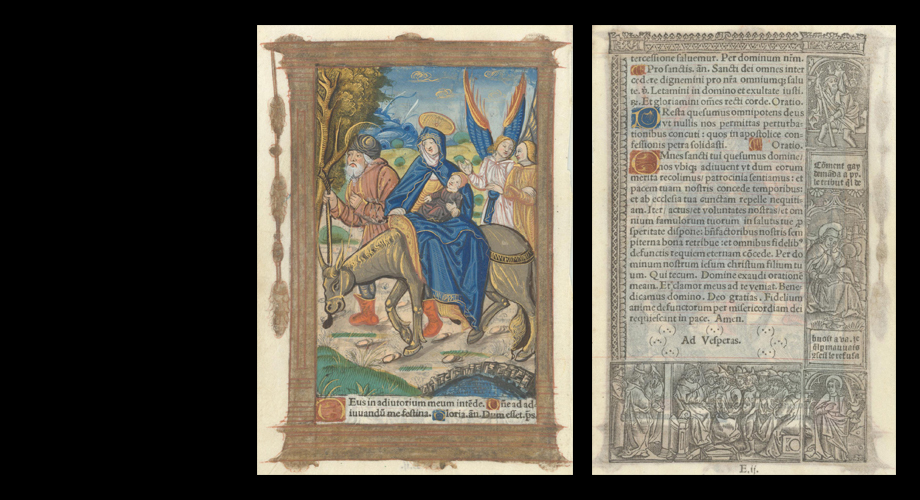 Eus in adiutorium meum intēde. Dñe ad ad
iuuandū me festina. Gloria. añ. Dum esset. ps.
tercessione saluemur. Per dominum nr̄m.
Pro sanctis. añ. Sancti dei omnes inter
cedere dignemini pro nr̄a omniumq; salu
te. v. Letamini in domino et exultate iusti
r. Et gloriamini om̄es recti corde. Oratio.
Resta quesumus omnipotens deus
vt nullis nos permittas perturba-
tionibus concuti: quos in apostolice con-
fessionis petra solidasti. Oratio.
Mnes sancti tui quesumus domine:
nos vbiq; adiuuent vt dum eorum
merita recolimus: patrocinia sentiamus: et
pacem tuam nostris concede temporibus:
et ab ecclesia tua cunctam repelle nequiti-
am. Iter: actus: et voluntates nostras: et om
nium famulorum tuorum in salutis tue p
speritate dispone: bn̄factoribus nostris sem
piterna bona retribue: et omnibus fidelib'
defunctis requiem eternam cōcede. Per do
minum nostrum iesum christum filium tu
um. Qui tecum. Domine exaudi orationē
meam. Et clamor meus ad te veniat. Bene
dicamus domino. Deo gratias. Fidelium
anime defunctorum per misericordiam dei
requiescant in pace. Amen.
Ad Vesperas.
Cōment gay
demāda a py-
le tribut
E.ij.